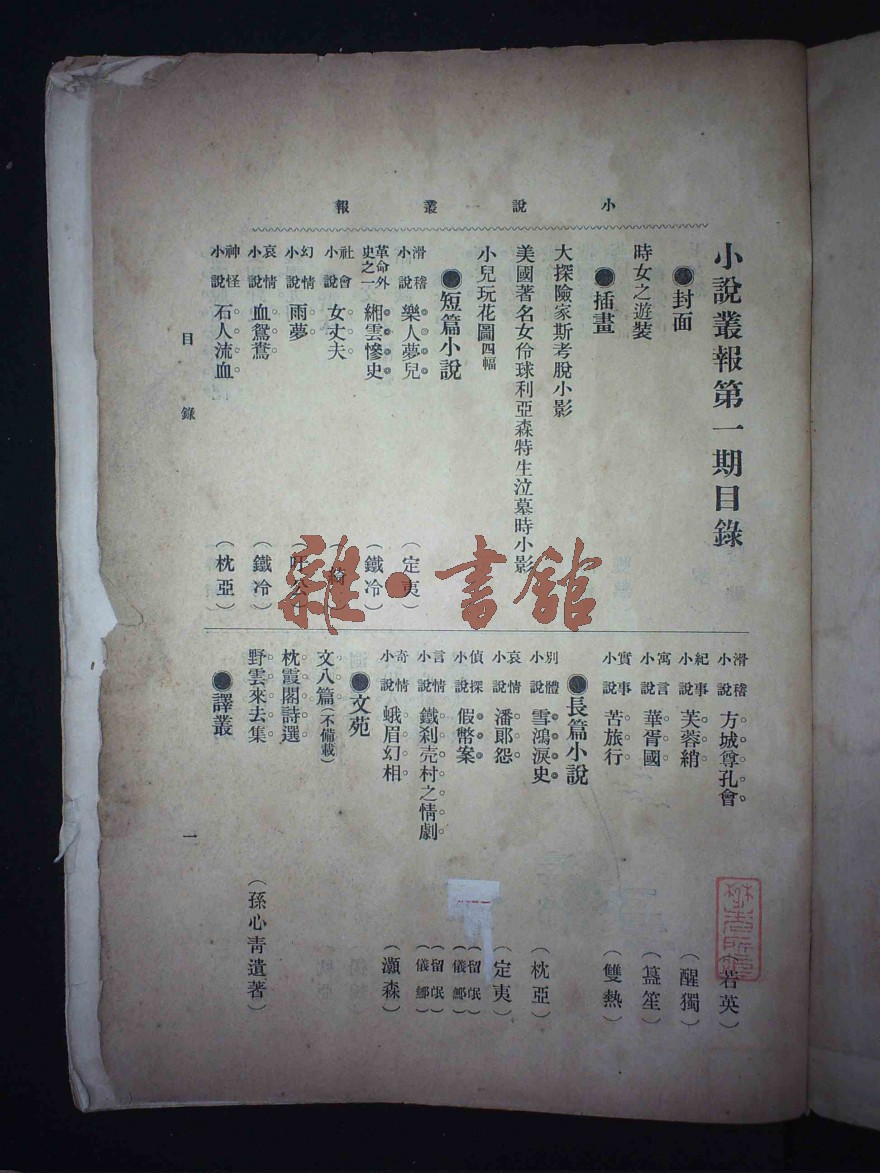 小說叢報
小說叢報第一期目錄
●封面
時女之遊裝
●插畫
大探險家斯考脫小影
美國著名女伶球利亞森特生泣墓時小影
小兒玩花圖四幅
●短篇小說
滑稽小說 樂人夢兒 (定夷)
革命外史之一 緗雲慘史 (鐵冷)
社會小說 女丈夫 (綺)
幻情小說 雨夢 (吁公)
哀情小說 血鴛鴦 (鐵冷)
神怪小說 石人流血 (枕亞)
滑稽小說 方城尊孔會 (若英)
紀事小說 芙蓉綃 (醒獨)
寓言小說 華胥國 (簋笙)
實事小說 苦旅行 (雙熱)
●長篇小說
別體小說 雪鴻淚史 (枕亞)
哀情小說 潘郎怨 (定夷)
偵探小說 假幣案 (留氓儀鄦)
言情小說 鐵刹壳村之情劇 (留氓儀鄦)
奇情小說 蛾眉幻相 (灝森)
●文苑
文八篇(不備載)
枕霞閣詩選
野雲來去集 (孫心青遺著)
●譯叢
目錄
一
雜·書館